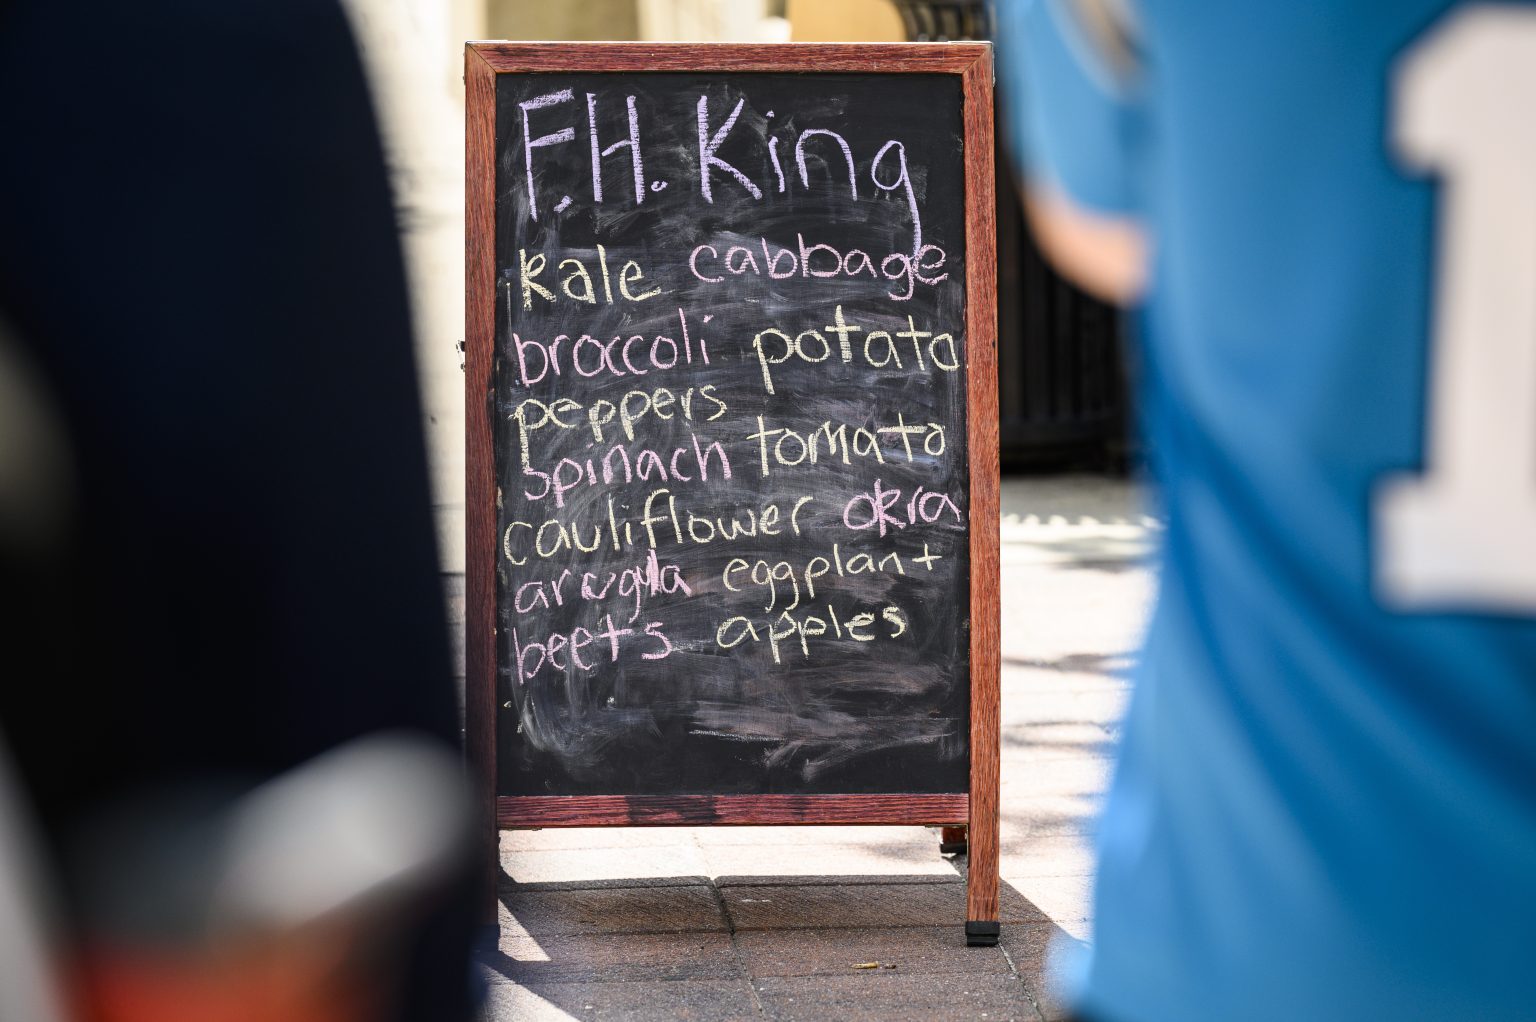 F.H. King
kale cabbage
broccoli potato
peppers
spinach tomato
cauliflower okra
arugula eggplant
beets apples
1